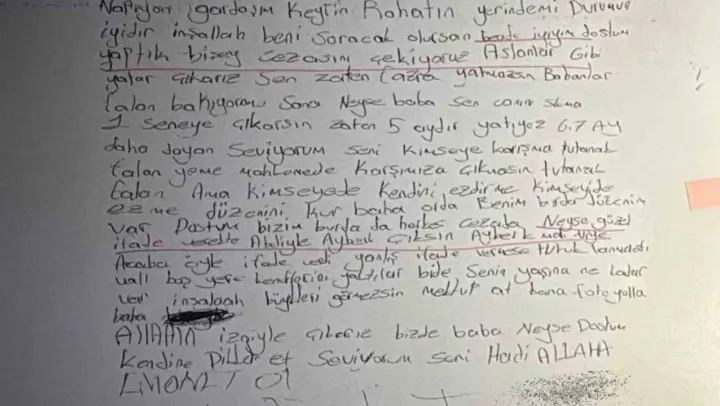 Napıyon gardaşım Keyfin Rohatın yerindemi Durumun
iyidir inşallah beni Soracak olursan bende iyiyim dostum
yaptık bişey cezasını çekiyoruz Aslanlar Gibi
yatar çıkarız Sen zaten fazla yatmazsın Babanlar
falan bakıyorum Sana Neyse baba sen canını sıkma
1 Seneye çıkarsın zaten 5 aydır yatıyoz 6.7 Ay
daha dayan Seviyorum seni Kimseye karışma tutanak
falan yeme mahkemede karşımıza çıkmasın tutanak
falan Ama Kimseyede Kendini ezdirme Kimseyide
ezme düzenini kur baba orda Benim burda düzenim
var Dostum bizim burda da herkes cezada Neyse güzel
ifade verelim Ahliyle Ayberk çıksın Ayberk niye
Acaba öyle ifade verdi yanlış ifade vermese tutuklanmazdı
vall boş yere kendilerini yaktılar bide Senin yaşına ne kadar
var inşalaah büyükleri görmezsin mektup at bana foto yolla
baba
ALLAHIN izniyle çıkarız bizde baba Neyse Dostum
Kendine Dikkat et Seviyorum Seni Hadi ALLAHA
EMANET Ol